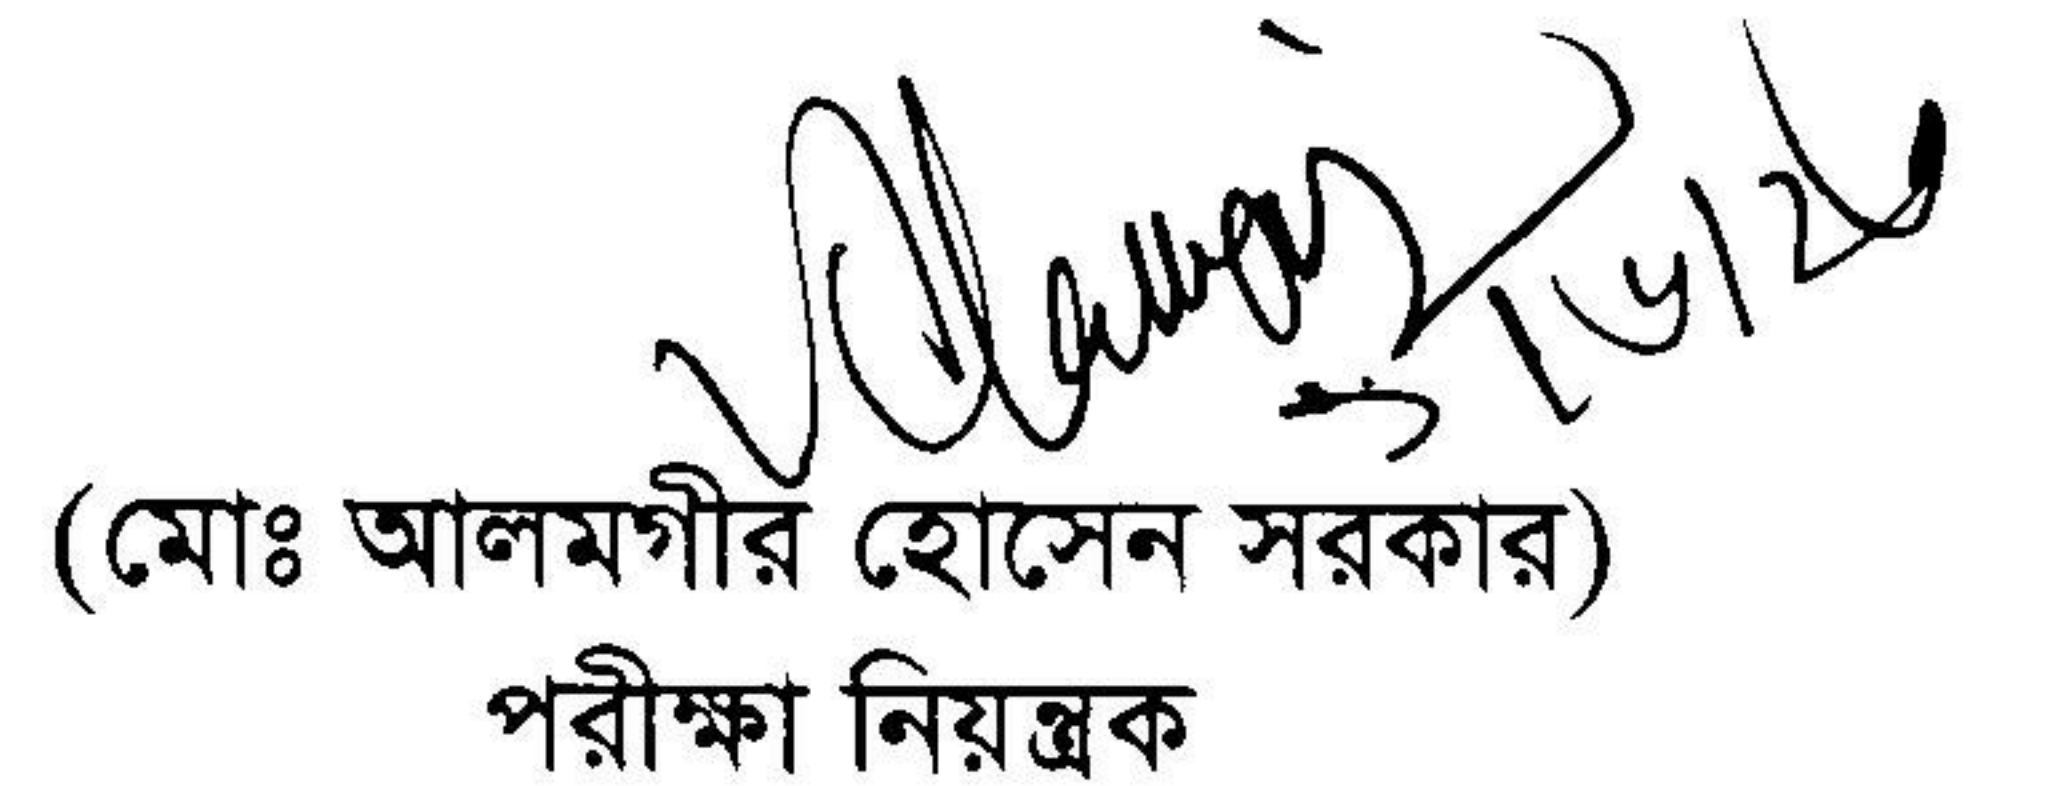 (মোঃ আলমগীর হোসেন সরকার)
পরীক্ষা নিয়ন্ত্রক